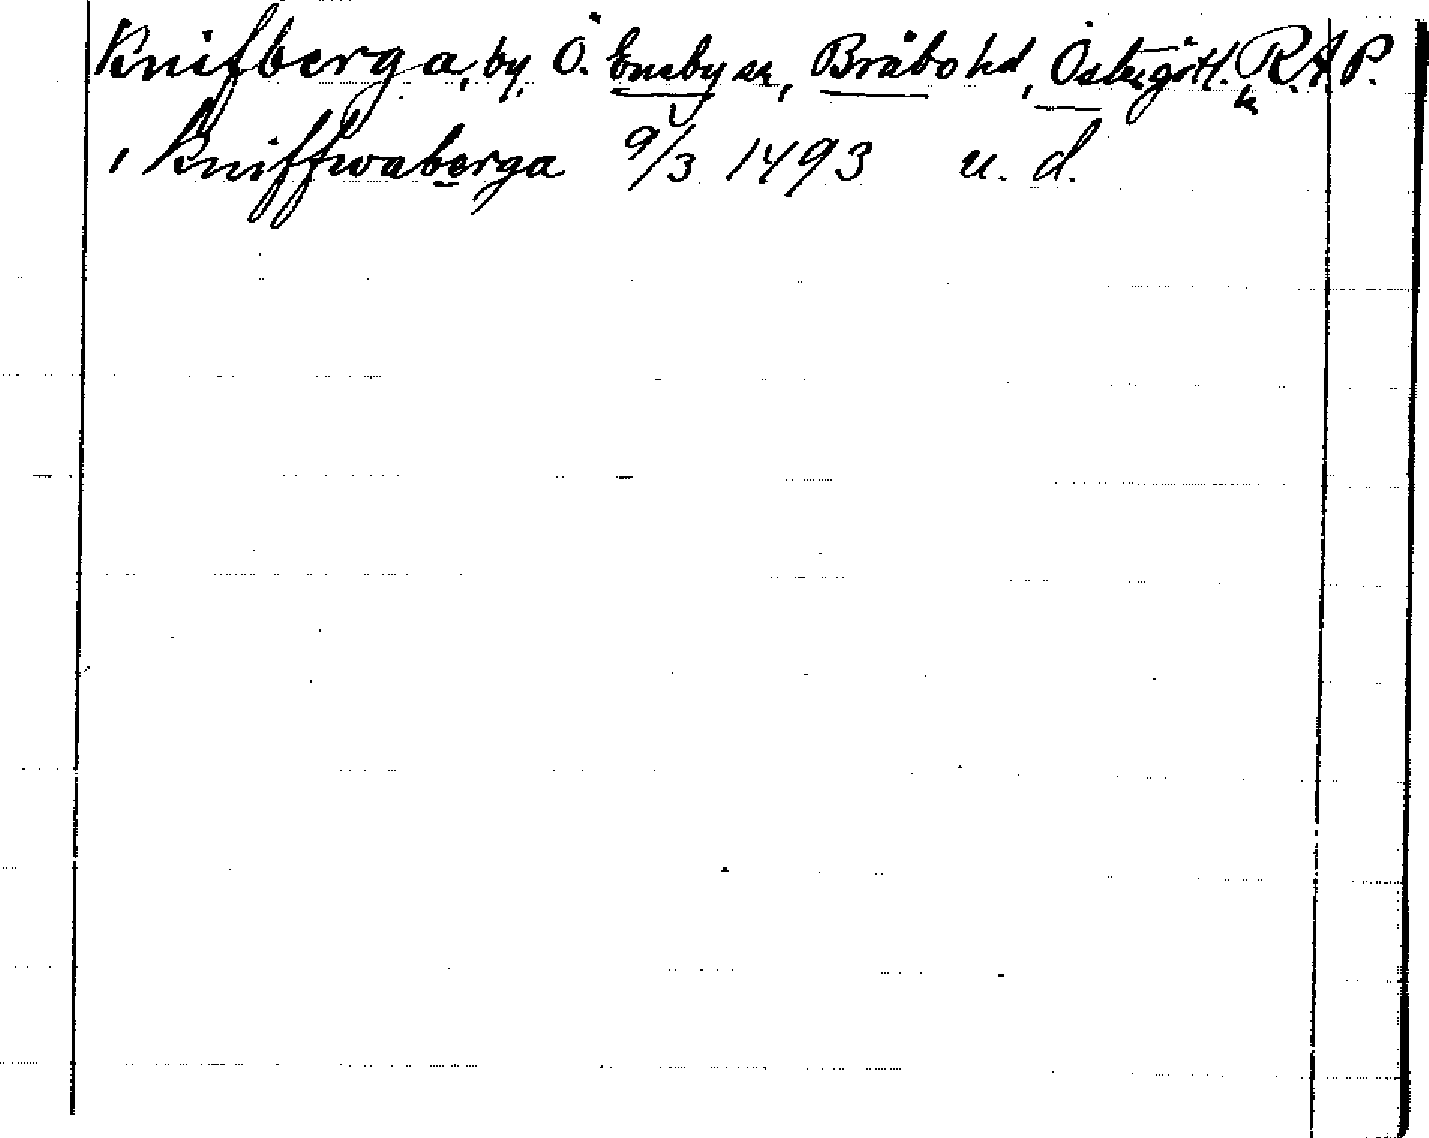 Knifberga, by, Ö. Eneby sn, Bråbo hd, Östergötl. l. R.A.P.
i Kniffwaberga 9/3 1493 u. d.